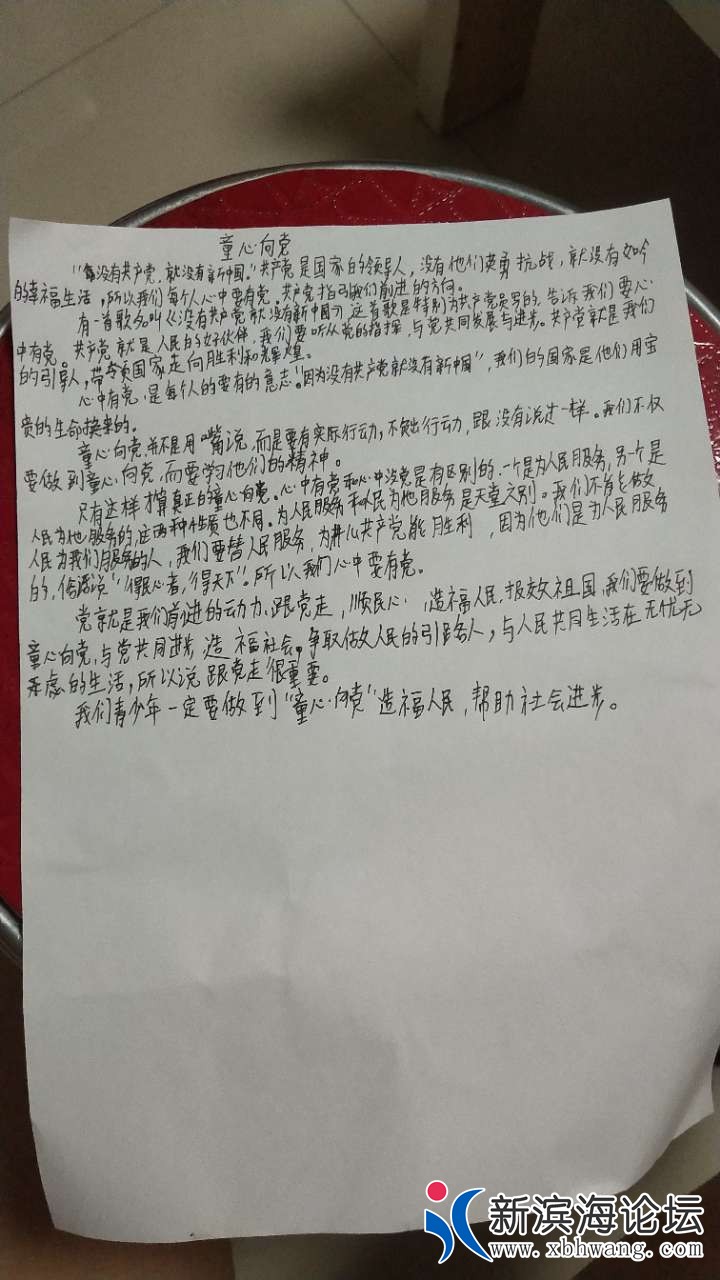 童心向党
"没有共产党,就没有新中国。"共产党是国家的领导人,没有他们英勇抗战,就没有如今
的幸福生活,所以我们每个人心中要有党。共产党指引我们前进的方向。
有一首歌名叫《没有共产党就没有新中国》这首歌是特别为共产党员写的,告诉我们要心
中有党。共产党就是人民的好伙伴,我们要听从党的指挥,与党共同发展与进步。共产党就是我们
的引导人,带领国家走向胜利和辉煌。
心中有党,是每个人的要有的意志。"因为没有共产党就没有新中国",我们的国家是他们用宝
贵的生命换来的。
童心向党并不是用嘴说,而是要有实际行动,不做出行动,跟没有说过一样。我们不仅
要做到童心向党,而要学习他们的精神。
只有这样才算真正的童心向党。心中有党和心中没党是有区别的,一个是为人民服务,另一个是
人民为他服务的,这两种性质也不同。为人民服务和人民为他服务是天堂之别。我们不能做
人民为我们服务的人,我们要替人民服务,为什么共产党能胜利,因为他们是为人民服务
的,俗话说"得民心者,得天下"。所以我们心中要有党。
党就是我们前进的动力,跟党走,顺民心,造福人民,报效祖国,我们要做到
童心向党,与党共同进步,造福社会。争取做人民的引路人,与人民共同生活在无忧无
虑的生活,所以说跟党走很重要。
我们青少年一定要做到"童心向党"造福人民,帮助社会进步。
新滨海论坛
www.xbhwang.com